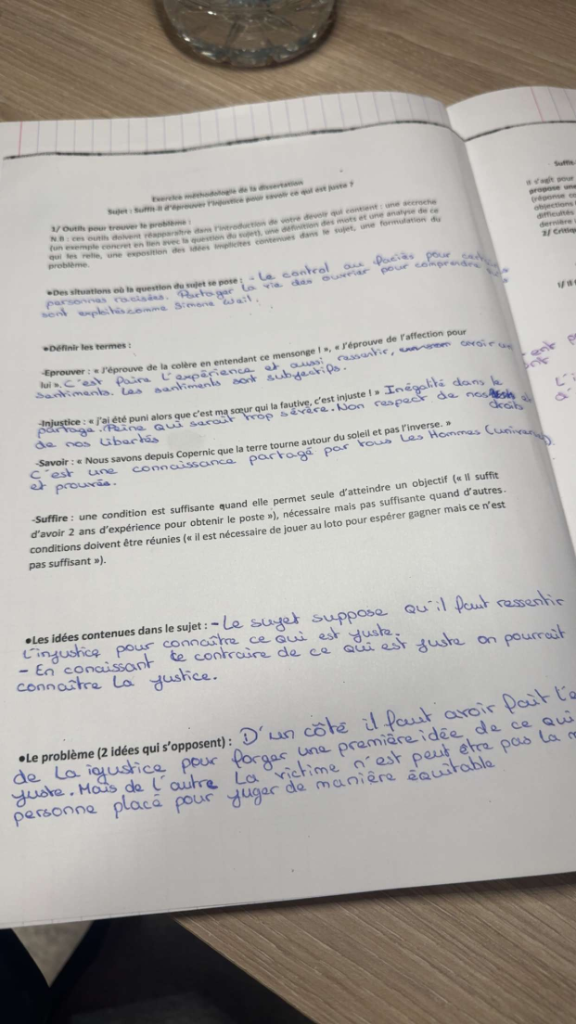 Exercice méthodologie de la dissertation
Sujet : Suffit-il d'éprouver l'injustice pour savoir ce qui est juste ?
1/ Outils pour trouver le problème :
N.B : ces outils doivent réapparaître dans l'introduction de votre devoir qui contient : une accroche
(un exemple concret en lien avec la question du sujet), une définition des mots et une analyse de ce
qui les relie, une exposition des idées implicites contenues dans le sujet, une formulation du
problème.
•Des situations où la question du sujet se pose : - Le control au faciès pour
personnes racisées. Partager la vie des ouvrier pour comprendre
sont exploités comme Simone Weil.
•Définir les termes :
-Eprouver : « J'éprouve de la colère en entendant ce mensonge ! », « J'éprouve de l'affection pour
lui ». C'est faire l'expérience et aussi ressentir, avoir
sentiments. Les sentiments sont subjectifs.
-Injustice : « j'ai été puni alors que c'est ma sœur qui la fautive, c'est injuste ! » Inégalité dans le
partage. Peine qui serait trop sévère. Non respect de nos droits
de nos libertés
-Savoir : « Nous savons depuis Copernic que la terre tourne autour du soleil et pas l'inverse. »
C'est une connaissance partagé par tous les Hommes
et prouvés.
-Suffire : une condition est suffisante quand elle permet seule d'atteindre un objectif (« Il suffit
d'avoir 2 ans d'expérience pour obtenir le poste »), nécessaire mais pas suffisante quand d'autres
conditions doivent être réunies (« il est nécessaire de jouer au loto pour espérer gagner mais ce n'est
pas suffisant »).
•Les idées contenues dans le sujet : - Le sujet suppose qu'il faut ressentir
L'injustice pour connaître ce qui est juste.
- En conaissant le contraire de ce qui est juste on pourrait
connaître la justice.
•Le problème (2 idées qui s'opposent) : D'un côté il faut avoir fait
de la igustice pour forger une première idée de ce qui
juste. Mais de l'autre La victime n'est peut être pas la
personne placé pour juger de manière équitable
Suffit
Il s'agit pour
propose une
objections
difficultés
dernière
2/ Critiq